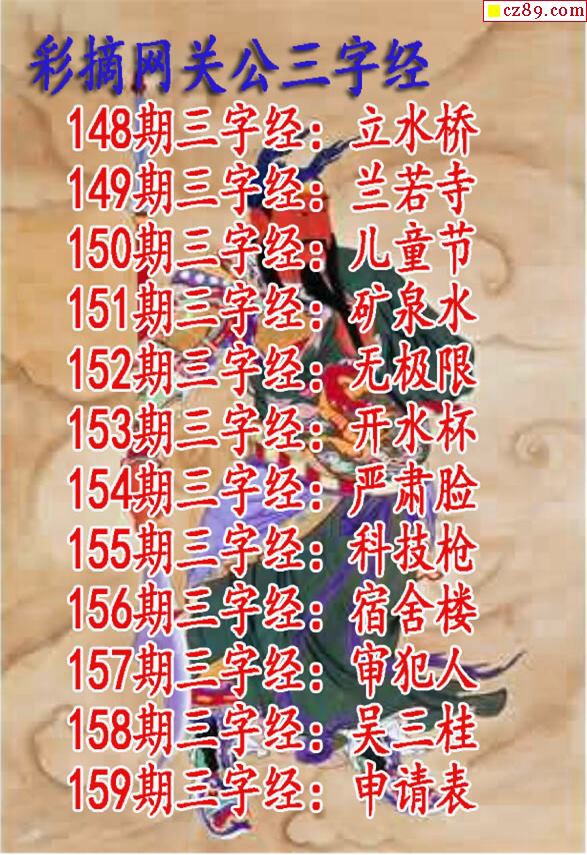 cz89.com
彩摘网关公三字经
148期三字经：立水桥
149期三字经：兰若寺
150期三字经：儿童节
151期三字经：矿泉水
152期三字经：无极限
153期三字经：开水杯
154期三字经：严肃脸
155期三字经：科技枪
156期三字经：宿舍楼
157期三字经：审犯人
158期三字经：吴三桂
159期三字经：申请表